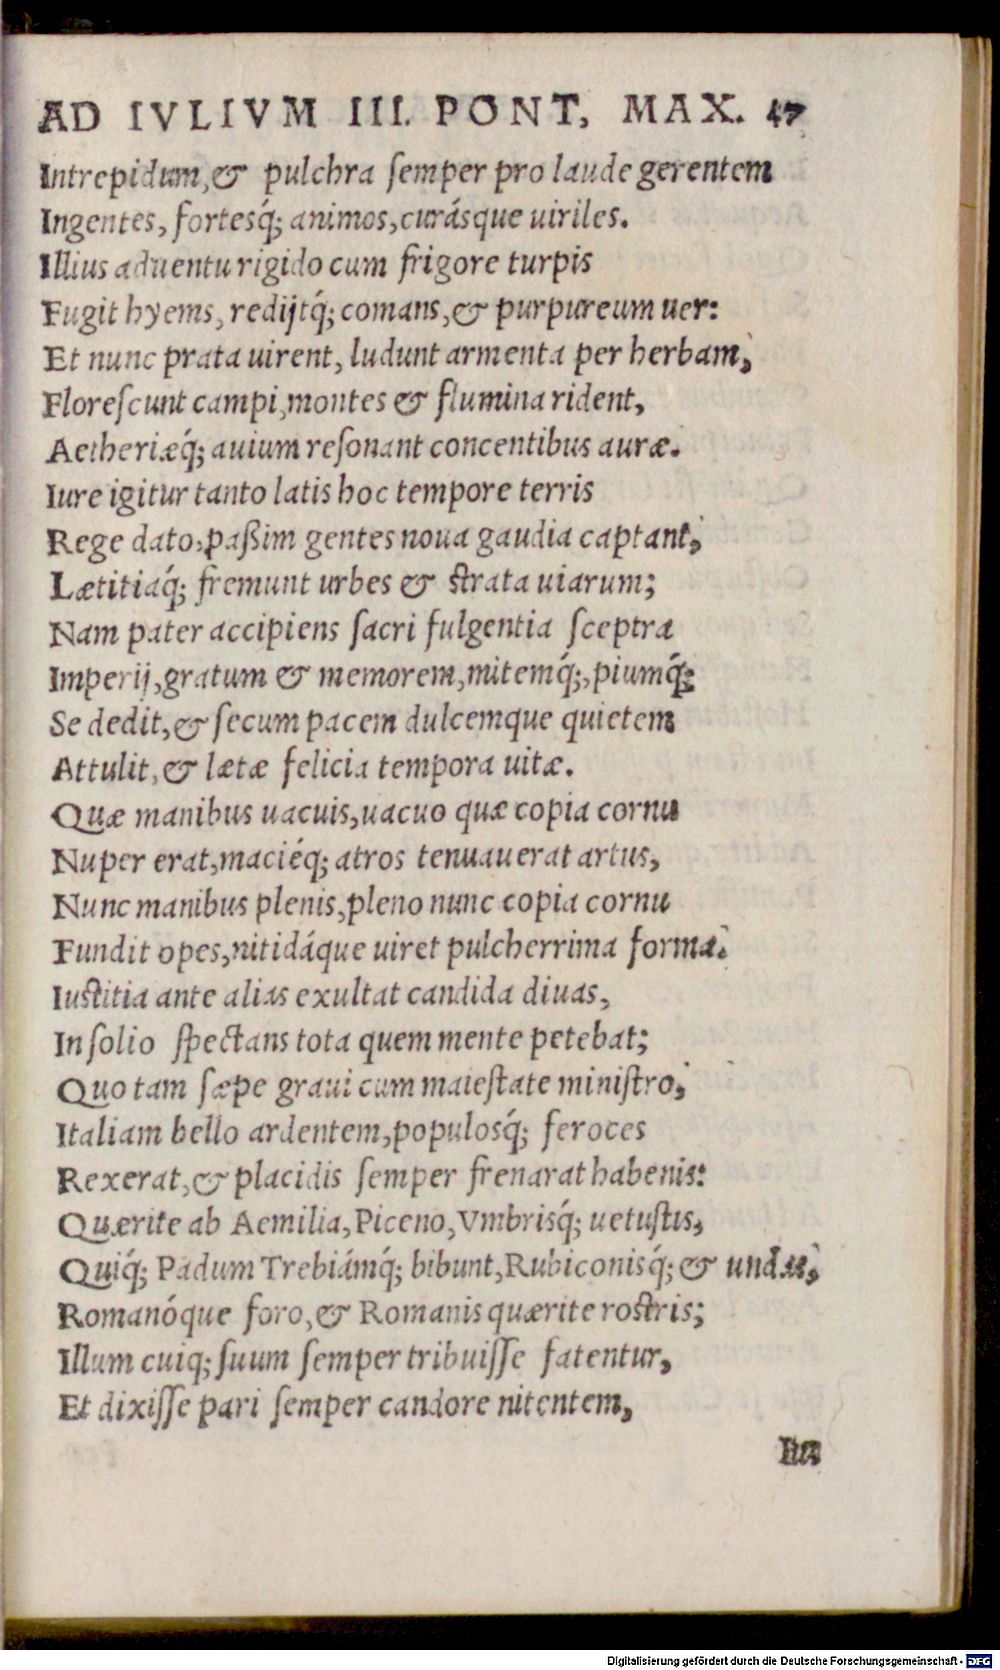 AD IVLIVM III. PONT, MAX. 47
Intrepidum,& pulchra ſemper pro laude gerentem
Ingentes, fortesq́; animos, curásque uiriles.
Illius aduentu rigido cum frigore turpis
Fugit hyems, redijtq́; comans,& purpureum uer:
Et nunc prata uirent, ludunt armenta per herbam,
Floreſcunt campi, montes & flumina rident,
Aetheriæq́; auium reſonant concentibus auræ.
Iure igitur tanto latis hoc tempore terris
Rege dato, paßim gentes noua gaudia captant,
Lætitiaq́; fremunt urbes & strata uiarum;
Nam pater accipiens ſacri fulgentia ſceptra
Imperij, gratum & memorem, mitemq́;, piumq́;
Se dedit,& ſecum pacem dulcemque quietem
Attulit,& lætæ felicia tempora uitæ.
Quæ manibus uacuis, uacuo quæ copia cornu
Nuper erat, maciéq; atros tenuauerat artus,
Nunc manibus plenis, pleno nunc copia cornu
Fundit opes, nitidáque uiret pulcherrima forma.
Iustitia ante alias exultat candida diuas,
In ſolio ſpectans tota quem mente petebat;
Quo tam ſæpe graui cum maieſtate miniſtro,
Italiam bello ardentem, populosq́; feroces
Rexerat,& placidis ſemper frenarat habenis:
Quærite ab Aemilia, Piceno, Vmbrisq́; uetuſtis,
Quiq́; Padum Trebiámq́; bibunt, Rubiconisq́; & undas,
Romanóque foro,& Romanis quærite rostris;
Illum cuiq; ſuum ſemper tribuiſſe fatentur,
Et dixiſſe pari ſemper candore nitentem,
Digitalisierung gefördert durch die Deutsche Forschungsgemeinschaft - DFG